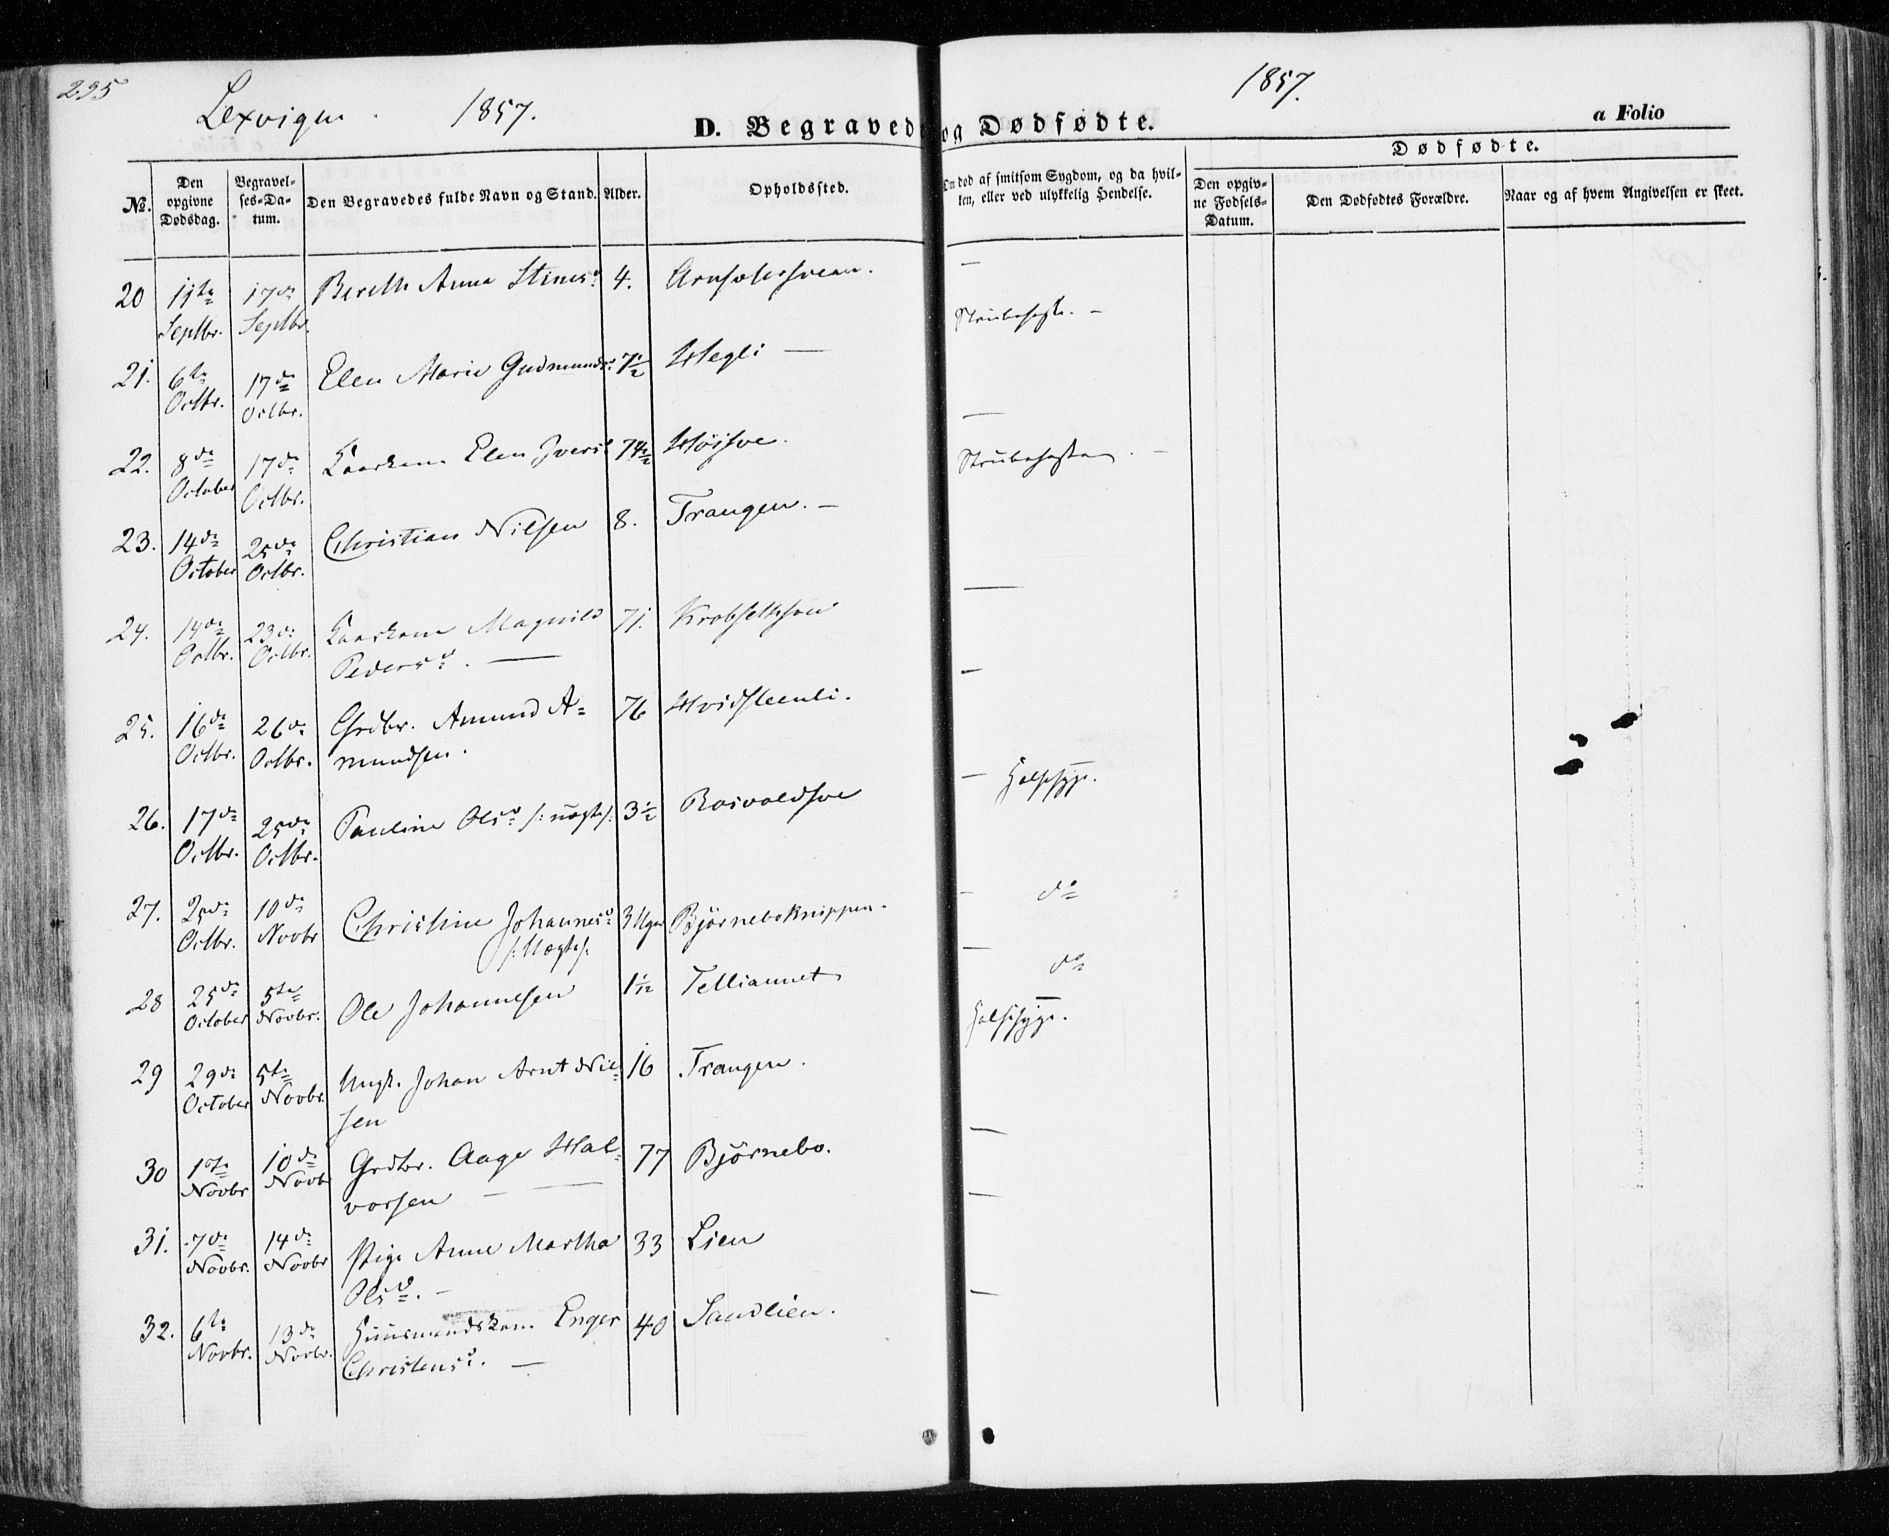 295
Lexvigen. 1857.
1857.
D. Begravede og Dødfødte.
a Folio
Dødfødte.
No.
Den opgivne Dødsdag.
Begravel-ses-Da-tum.
Den Begravedes fulde Navn og Stand.
Alder.
Opholdssted.
Om død af smitsom Sygdom, og da hvil-ken, eller ved ulykkelig Hendelse.
Den opgiv-ne Fødsels-Datum.
Den Dødfødtes Forældre.
Naar og af hvem Angivelsen er skeet.
20 11te Septbr. 17de Septbr. Bereth Anna Stinesd 4. —
Strubehoste. —
21. 6te Octbr. 17de Octbr. Elen Marie Gudmundsd 7½ Hegli — —
22. 8de October 17de Octbr. Kaarkone Elen Iversd 74½
Strubehosten. —
23. 14de October 25de Octbr. Christian Nilsen 8. Trangen. — —
24. 19de Octbr. 23de Octbr. Kaarkone Magnild 71.
Pedersd. — —
25. 16de Octbr. 26de Octbr. Grdbr. Amund A= 76 Hvidsteenli.
mundsen.
26. 17de Octbr. 25de Octbr. Pauline Olsd /: uægte :/ 3½ — Halssyge.
27. 25de Octbr. 10de Novbr Christine Johannesd 3 Uger Bjørneboknippen. — do
/: Uægte :/
28 25de October 5te Novbr. Ole Johannesen 1 1/12 — do
Halssyge.
29 29de October 5te Novbr. Ungk. Johan Arnt Niel= 16 Trangen.
sen
30 1ste Novbr 10de Novb Grdbr. Aage Hal= 77 Bjørnebo. —
vorsen — —
31. 7de Novbr. 14de Novbr Pige Anne Martha 33 Lien —
Olsd. —
32. 6te Novbr. 13de Novbr. Huusmandskone Enger 40 Sandlien. —
Christensd. —